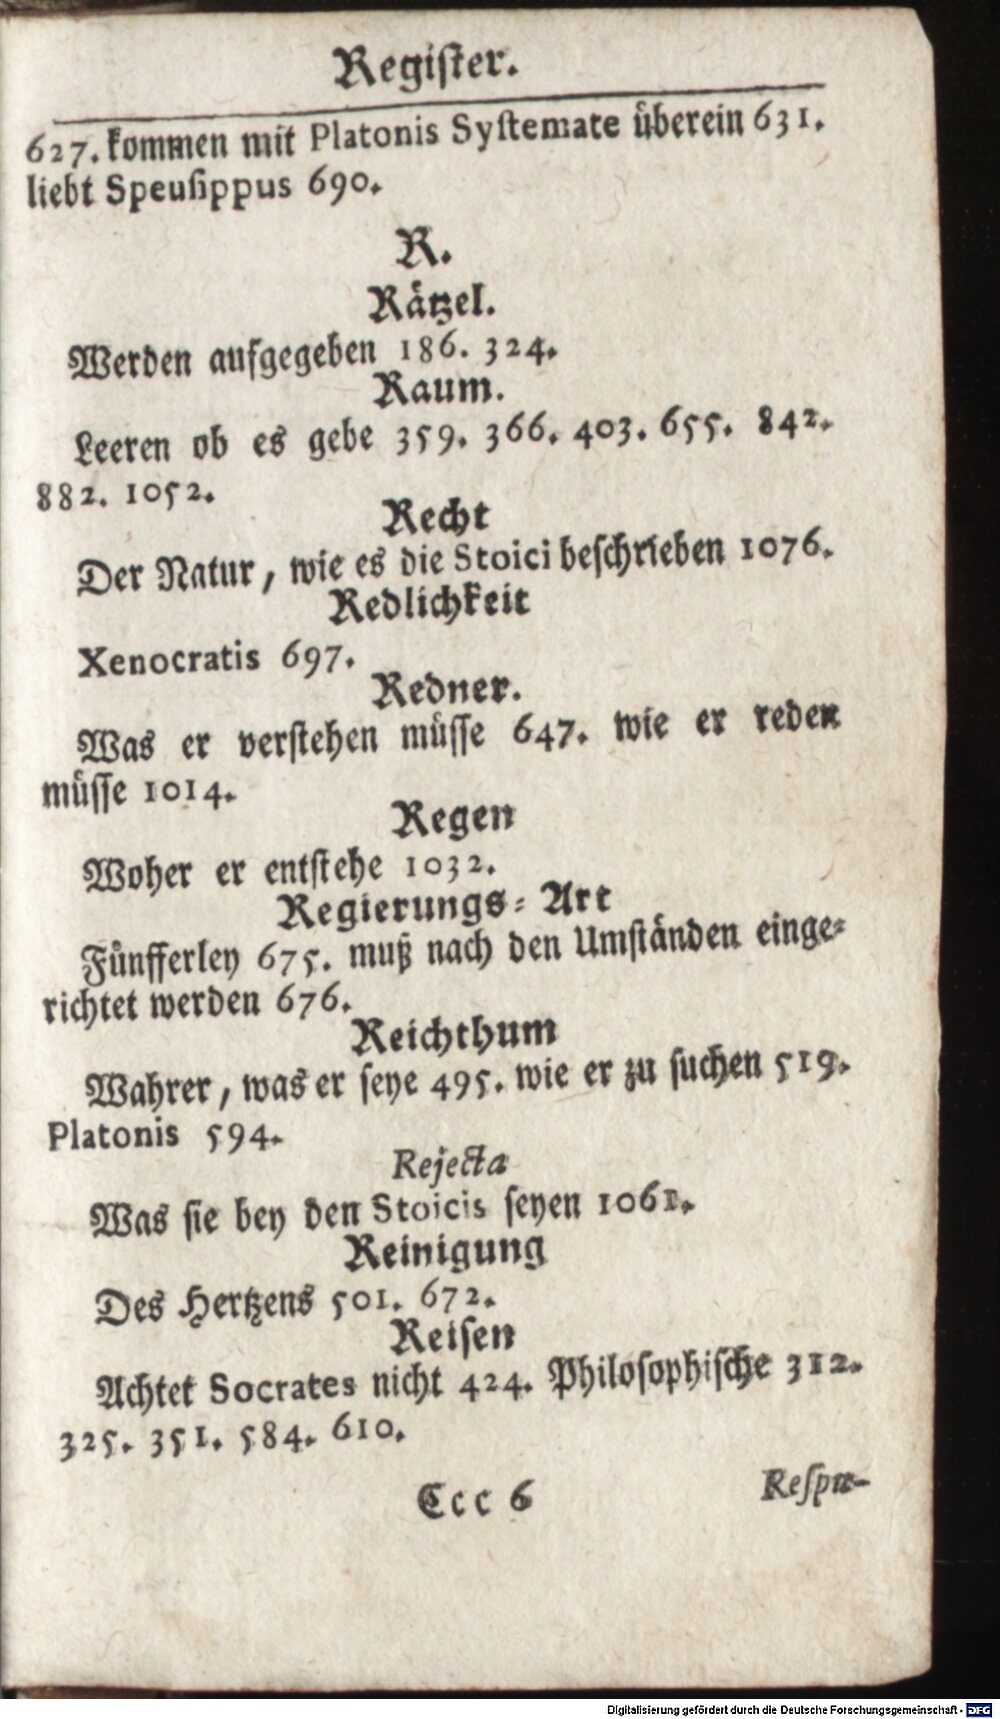 Register.
627. kommen mit Platonis Systemate überein 631.
liebt Speusippus 690.
R.
Rätzel.
Werden aufgegeben 186. 324.
Raum.
Leeren ob es gebe 359. 366. 403. 655. 842.
882. 1052.
Recht
Der Natur, wie es die Stoici beschrieben 1076.
Redlichkeit
Xenocratis 697.
Redner.
Was er verstehen müsse 647. wie er reden
müsse 1014.
Regen
Woher er entstehe 1032.
Regierungs-Art
Fünfferley 675. muß nach den Umständen einge-
richtet werden 676.
Reichthum
Wahrer, was er seye 495. wie er zu suchen 519.
Platonis 594.
Rejecta
Was sie bey den Stoicis seyen 1061.
Reinigung
Des Hertzens 501. 672.
Reisen
Achtet Socrates nicht 424. Philosophische 312.
325. 351. 584. 610.
Ccc 6 Respu-
Digitalisierung gefördert durch die Deutsche Forschungsgemeinschaft - DFG